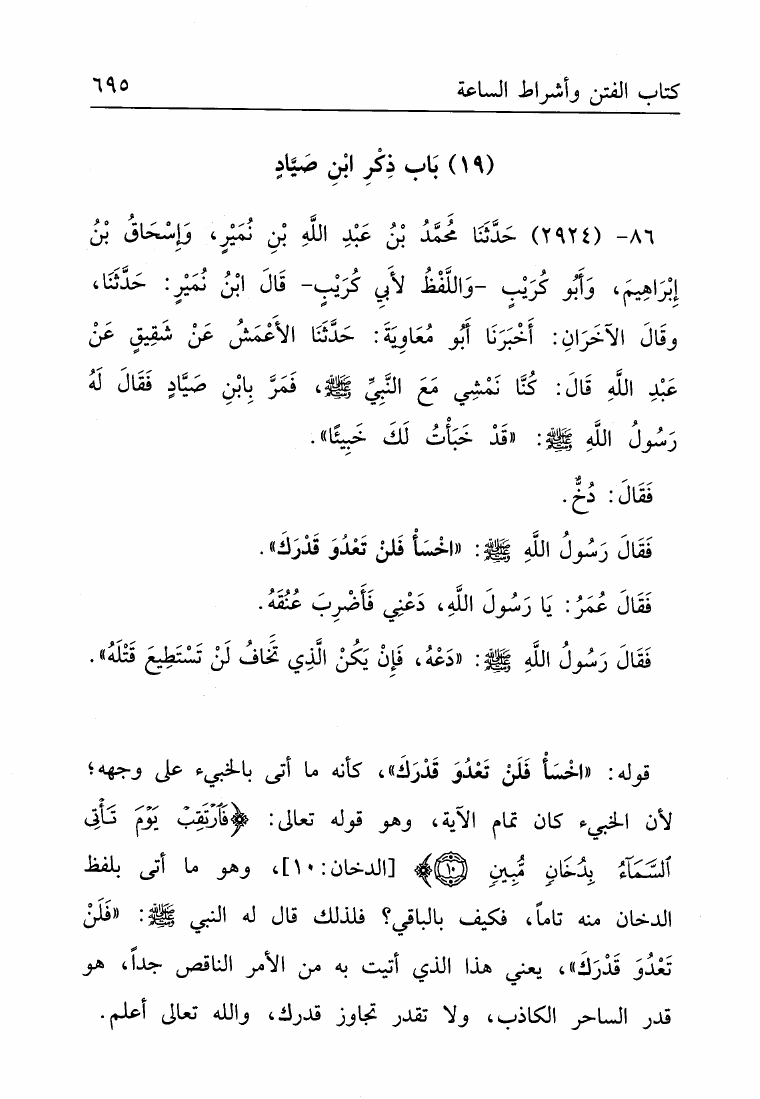 كتاب الفتن وأشراط الساعة
٦٩٥
(١٩) بَاب ذِكْرِ ابْنِ صَيَّادٍ
٨٦- (٢٩٢٤) حَدَّثَنَا مُحَمَّدُ بْنُ عَبْدِ اللَّهِ بْنِ نُمَيْرٍ، وَإِسْحَاقُ بْنُ
إِبْرَاهِيمَ، وَأَبُو كُرَيْبٍ -وَاللَّفْظُ لأَبِي كُرَيْبٍ- قَالَ ابْنُ نُمَيْرٍ: حَدَّثَنَا،
وقَالَ الآخَرَانِ: أَخْبَرَنَا أَبُو مُعَاوِيَةَ: حَدَّثَنَا الأَعْمَشُ عَنْ شَقِيقٍ عَنْ
عَبْدِ اللَّهِ قَالَ: كُنَّا نَمْشِي مَعَ النَّبِيِّ ﷺ، فَمَرَّ بِابْنِ صَيَّادٍ فَقَالَ لَهُ
رَسُولُ اللَّهِ ﷺ: «قَدْ خَبَأْتُ لَكَ خَبِيئًا».
فَقَالَ: دُخٌّ.
فَقَالَ رَسُولُ اللَّهِ ﷺ: «اخْسَأْ فَلَنْ تَعْدُوَ قَدْرَكَ».
فَقَالَ عُمَرُ: يَا رَسُولَ اللَّهِ، دَعْنِي فَأَضْرِبَ عُنُقَهُ.
فَقَالَ رَسُولُ اللَّهِ ﷺ: «دَعْهُ، فَإِنْ يَكُنْ الَّذِي تَخَافُ لَنْ تَسْتَطِيعَ قَتْلَهُ».
قوله: «اخْسَأْ فَلَنْ تَعْدُوَ قَدْرَكَ»، كأنه ما أتى بالخبيء على وجهه؛
لأن الخبيء كان تمام الآية، وهو قوله تعالى: ﴿فَٱرْتَقِبْ يَوْمَ تَأْتِى
ٱلسَّمَآءُ بِدُخَانٍ مُّبِينٍ ١٠﴾ [الدخان:١٠]، وهو ما أتى بلفظ
الدخان منه تاماً، فكيف بالباقي؟ فلذلك قال له النبي ﷺ: «فَلَنْ
تَعْدُوَ قَدْرَكَ»، يعني هذا الذي أتيت به من الأمر الناقص جداً، هو
قدر الساحر الكاذب، ولا تقدر تجاوز قدرك، والله تعالى أعلم.